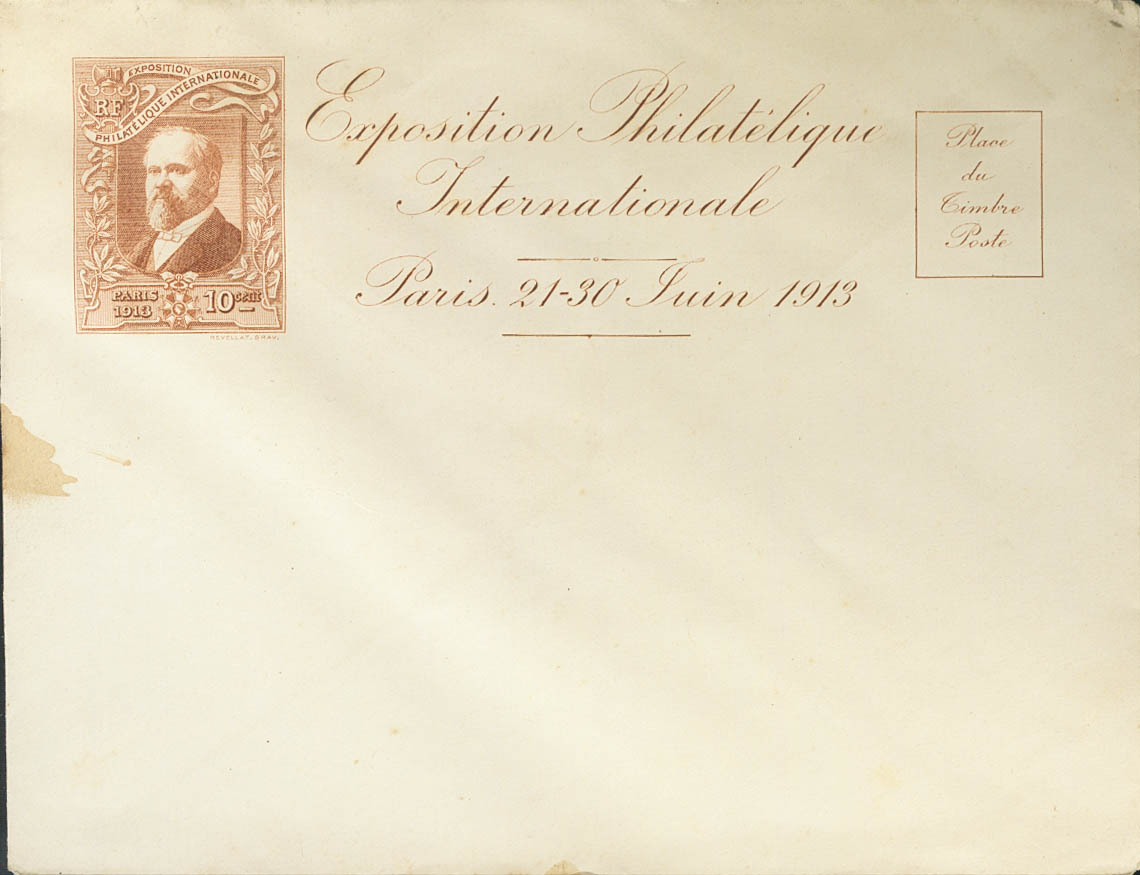 EXPOSITION
PHILATÉLIQUE INTERNATIONALE
RF
PARIS
1913
10 CENT
REVELLAT, GRAV.
Exposition Philatélique
Internationale
Paris. 21-30 Juin 1913
Place
du
Timbre
Poste